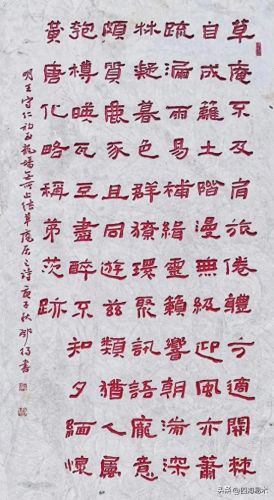 草庵不及肩旅倦體方適開棘
自成籬土階漫無級迎風亦蕭
疏漏雨易補緝靈籟響朝湍深
林凝暮色群獠環聚訊語龐意
頗質鹿豕且同遊茲類猶人屬
匏樽暎瓦豆盡醉不知夕緬懷
黃唐化略稱茅茨跡
明王守仁初至龍場無所止結草庵居之詩庚子秋書
头条